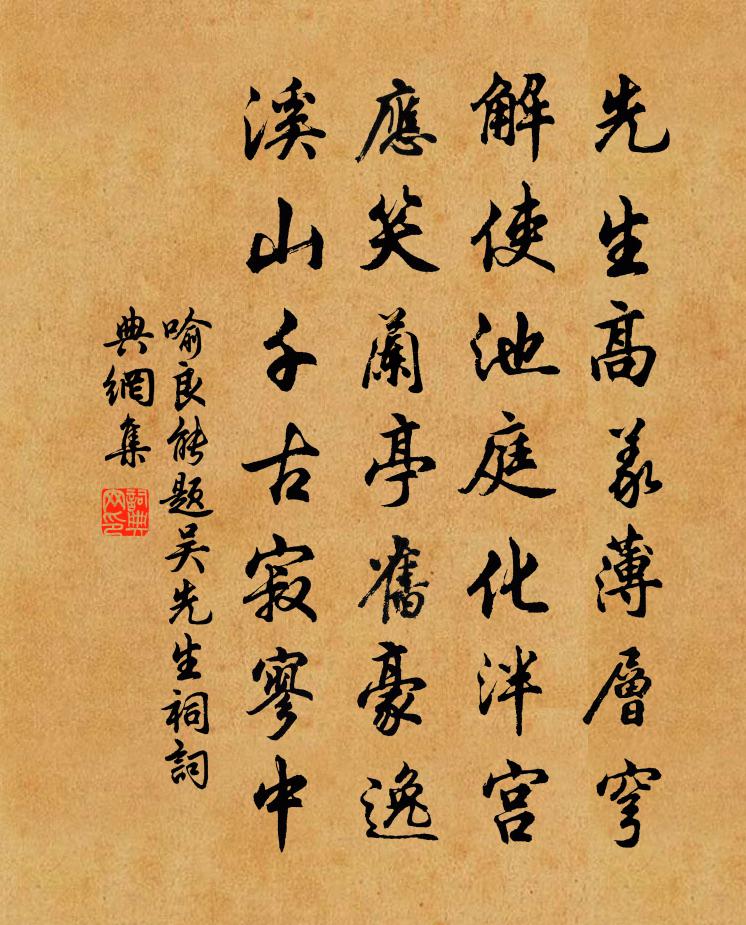 先生高義薄層穹
解使池庭化泮宮
應笑蘭亭舊豪逸
溪山千古寂寥中
喻良能題吴先生祠詞
典網集
詞典網印